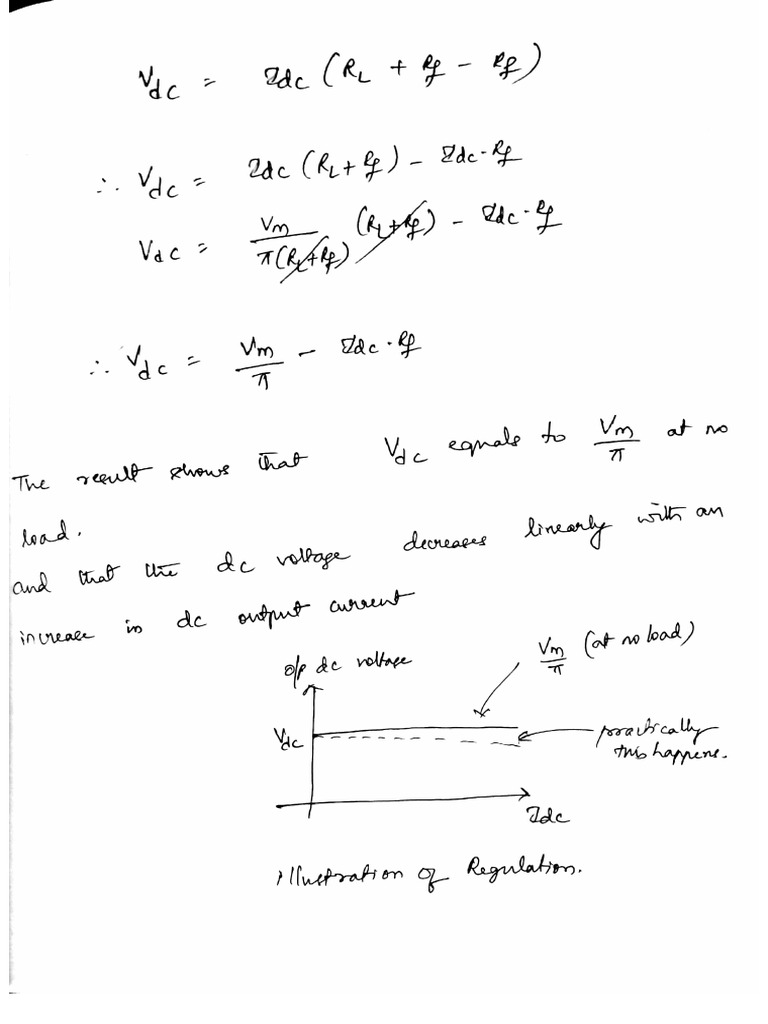 Vdc = Idc (RL + Rf - Rf)
∴ Vdc = Idc (RL + Rf) - Idc · Rf
Vdc = Vm / π(RL + Rf) (RL + Rf) - Idc · Rf
∴ Vdc = Vm / π - Idc · Rf
The result shows that Vdc equals to Vm / π at no
load.
and that the dc voltage decreases linearly with an
increase in dc output current
o/p dc voltage
Vm / π (at no load)
Vdc
practically
this happens.
Idc
illustration of Regulation.